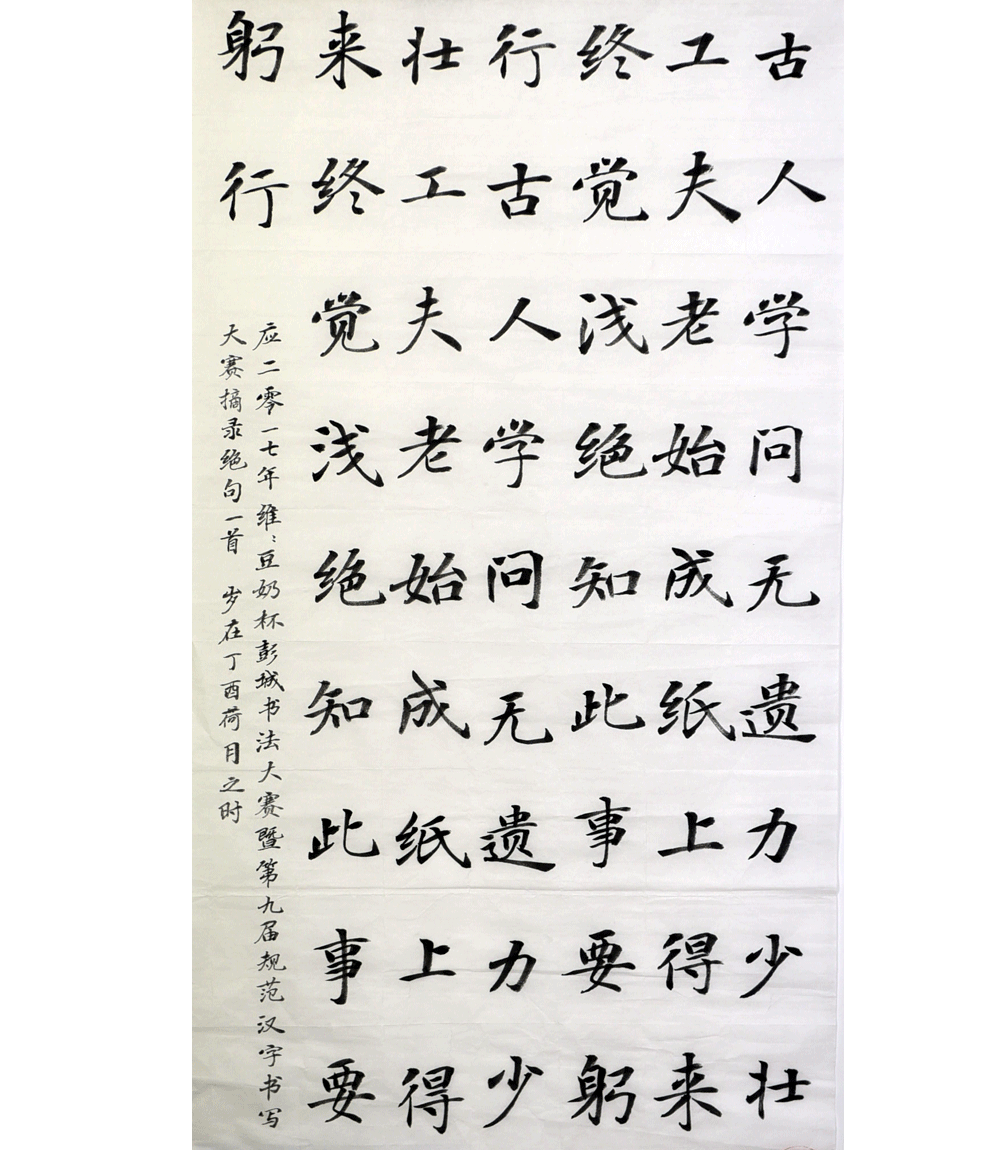 古人学问无遗力少壮
工夫老始成纸上得来
终觉浅绝知此事要躬
行古人学问无遗力少
壮工夫老始成纸上得
来终觉浅绝知此事要
躬行
应二零一七年维：豆奶杯彭城书法大赛暨第九届规范汉字书写
大赛摘录绝句一首 岁在丁酉荷月之时